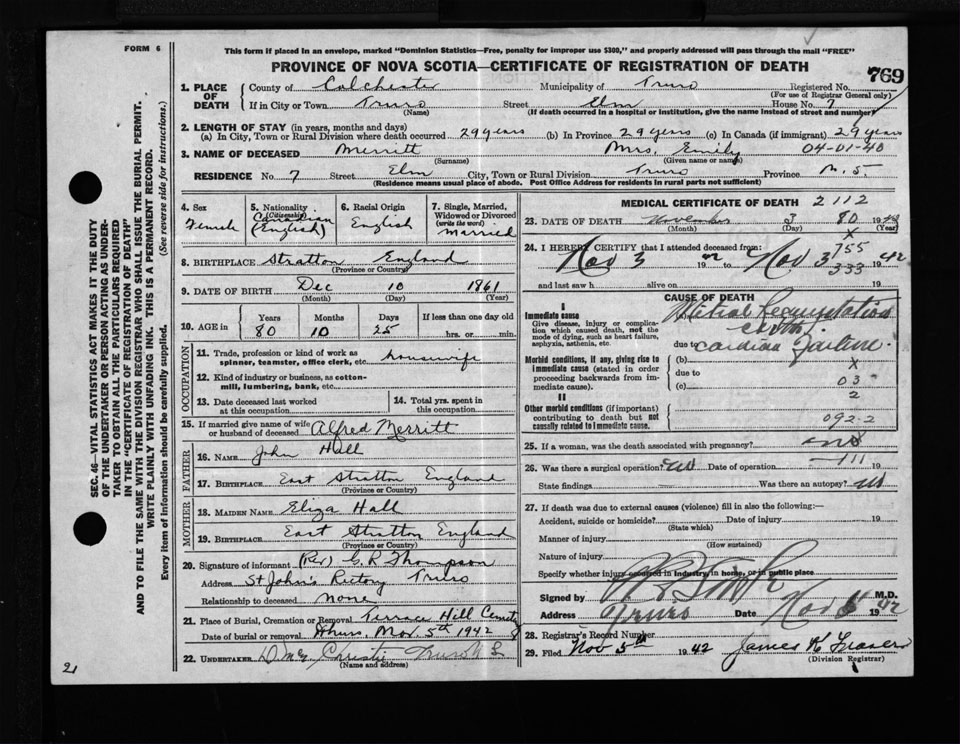 FORM 6
This form if placed in an envelope, marked "Dominion Statistics—Free, penalty for improper use $300," and properly addressed will pass through the mail "FREE"
PROVINCE OF NOVA SCOTIA—CERTIFICATE OF REGISTRATION OF DEATH
769
1. PLACE OF DEATH
County of Colchester Municipality of Truro Registered No.
(For use of Registrar General only)
If in City or Town Truro Street Elm House No. 7
(Name) (If death occurred in a hospital or institution, give the name instead of street and number)
2. LENGTH OF STAY (in years, months and days)
(a) In City, Town or Rural Division where death occurred 29 years (b) In Province 29 years (c) In Canada (if immigrant) 29 years
3. NAME OF DECEASED Merritt Mrs. Emily 04-01-40
(Surname) (Given name or names)
RESIDENCE No 7 Street Elm City, Town or Rural Division Truro Province N.S.
(Residence means usual place of abode. Post Office Address for residents in rural parts not sufficient)
4. Sex
Female
5. Nationality (Citizenship)
Canadian
(English)
6. Racial Origin
English
7. Single, Married, Widowed or Divorced (write the word)
Married
8. BIRTHPLACE Stratton England
(Province or Country)
9. DATE OF BIRTH Dec 10 1861
(Month) (Day) (Year)
10. AGE in
Years Months Days If less than one day old
80 10 25 hrs. or min.
OCCUPATION
11. Trade, profession or kind of work as spinner, teamster, office clerk, etc. housewife
12. Kind of industry or business, as cotton-mill, lumbering, bank, etc.
13. Date deceased last worked at this occupation
14. Total yrs. spent in this occupation
15. If married give name of wife or husband of deceased Alfred Merritt
FATHER
16. NAME John Hall
17. BIRTHPLACE East Stratton England
(Province or Country)
MOTHER
18. MAIDEN NAME Eliza Hall
19. BIRTHPLACE East Stratton England
(Province or Country)
20. Signature of informant (Rev) C. R. Thompson
Address St John's Rectory Truro
Relationship to deceased none
21. Place of Burial, Cremation or Removal Terrace Hill
Date of burial or removal Thurs. Nov. 5th 1942
22. UNDERTAKER Christie Truro N S
(Name and address)
MEDICAL CERTIFICATE OF DEATH 2112
23. DATE OF DEATH November 3 80 19
(Month) (Day) (Year)
X
24. I HEREBY CERTIFY that I attended deceased from:
755
Nov 3 19 42 Nov 3 333 19 42
and last saw h alive on 19
CAUSE OF DEATH
I
Immediate cause
Give disease, injury or complication which caused death, not the mode of dying, such as heart failure, asphyxia, asthenia, etc.
Mitral Regurgitation
due to
cardiac failure
Morbid conditions, if any, giving rise to immediate cause (stated in order proceeding backwards from immediate cause).
(b)
X
due to
(c)
03
2
II
Other morbid conditions (if important) contributing to death but not causally related to immediate cause.
092-2
25. If a woman, was the death associated with pregnancy? no
26. Was there a surgical operation? no Date of operation 19
State findings Was there an autopsy? no
27. If death was due to external causes (violence) fill in also the following:—
Accident, suicide or homicide? Date of injury 19
(State which)
Manner of injury
(How sustained)
Nature of injury
Specify whether injury occurred in industry, in home, or in public place
Signed by M.D.
Address Truro Date Nov 19 42
28. Registrar's Record Number
29. Filed Nov 5th 19 42 James K Fraser
(Division Registrar)
SEC. 46—VITAL STATISTICS ACT MAKES IT THE DUTY
OF THE UNDERTAKER OR PERSON ACTING AS UNDER-
TAKER TO OBTAIN ALL THE PARTICULARS REQUIRED
IN THE "CERTIFICATE OF REGISTRATION OF DEATH"
AND TO FILE THE SAME WITH THE DIVISION REGISTRAR WHO SHALL ISSUE THE BURIAL PERMIT.
WRITE PLAINLY WITH UNFADING INK. THIS IS A PERMANENT RECORD.
Every item of information should be carefully supplied. (See reverse side for instructions.)
21